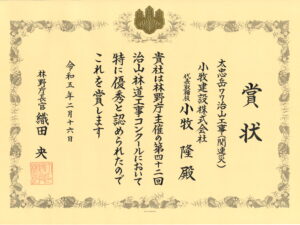 賞状
大忠岳ワ7治山工事(関連災)
小牧建設株式会社
代表取締役 小牧隆殿
貴社は林野庁主催の第四十二回
治山・林道工事コンクールにおいて
特に優秀と認められたので
これを賞します
令和五年二月十六日
林野庁長官 織田央